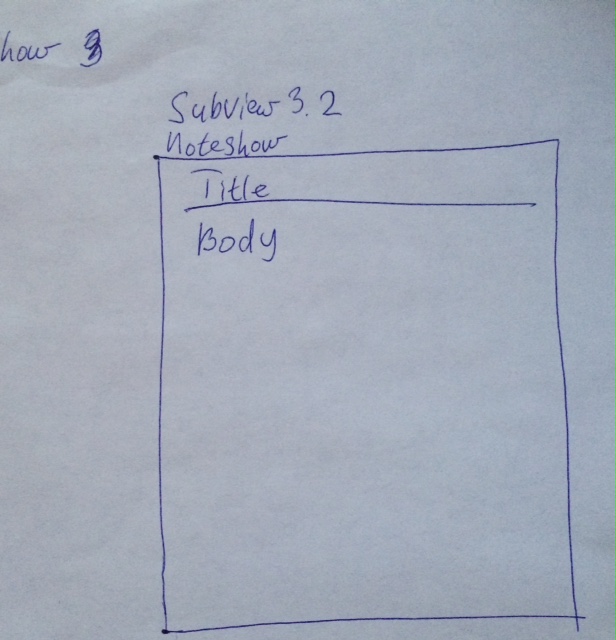 how 3
Subview 3.2
Noteshow
Title
Body